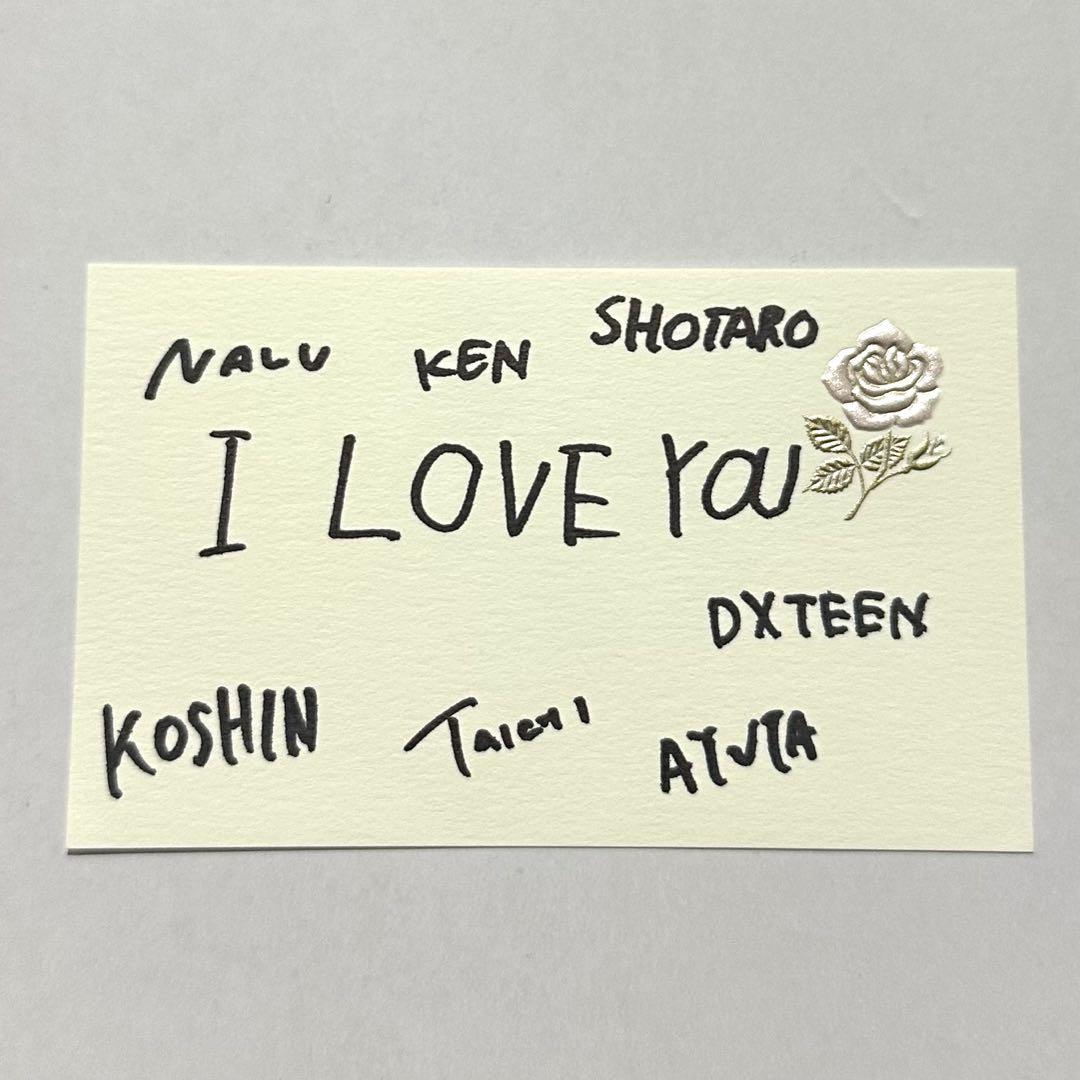 NALU KEN SHOTARO
I LOVE YOU
DXTEEN
KOSHIN Taichi AYUTA